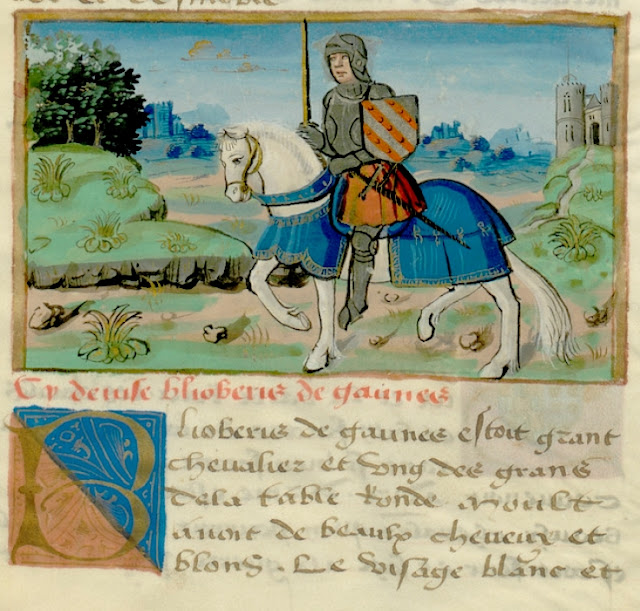 Cy devise blioberis de gaunes
Blioberis de gaunes estoit grant
chevalier et ung des grans
de la table Ronde Moult
avoit de beaulx cheveux et
blons. Le visage blanc et